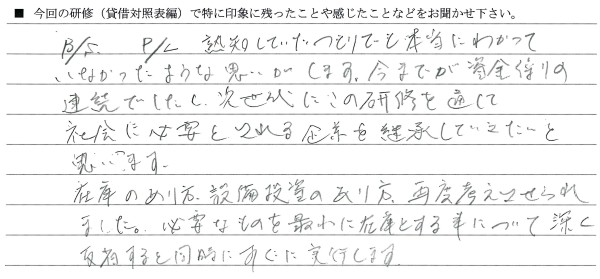 ■ 今回の研修(貸借対照表編)で特に印象に残ったことや感じたことなどをお聞かせ下さい。
B/S. P/L 熟知していたつもりでも本当にわかって
いなかったような思いがします。今までが資金繰りの
連続でしたし、次世代にこの研修を通して
社会に必要とされる企業を継承していきたいと
思います。
在庫のあり方、設備投資のあり方、再度考えさせられ
ました。必要なものを最小に在庫とする事について深く
反省すると同時にすぐに実行します。